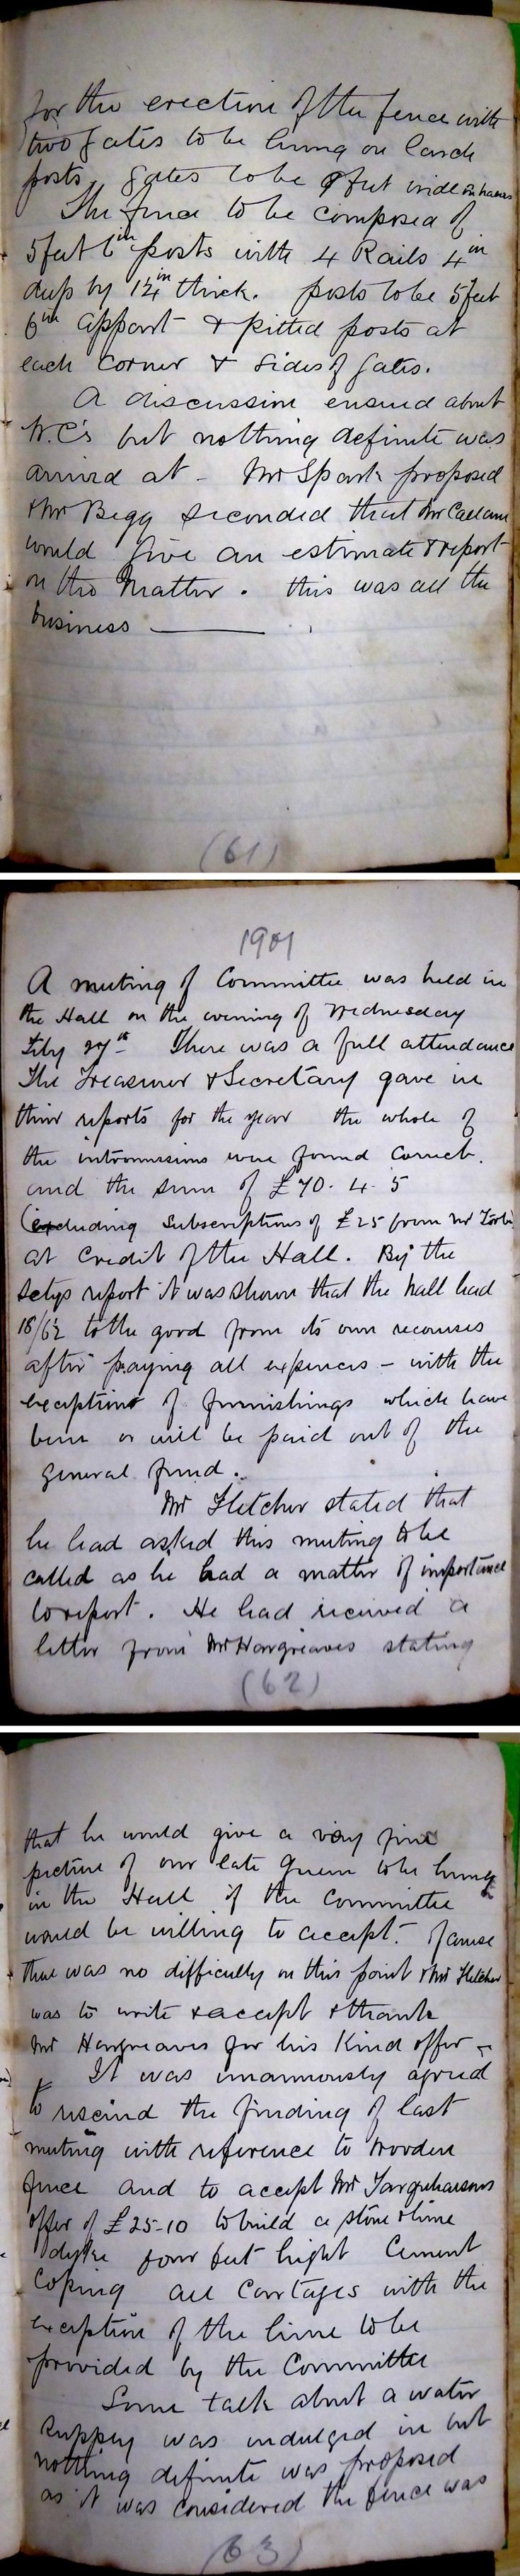 for the erection of the fence with
two gates to be hung on larch
posts gates to be 9 feet wide
The fence to be composed of
5 feet 6in posts with 4 Rails 4in
deep by 1¼in thick. posts to be 5 feet
6in appart & pitted posts at
each corner & sides of gates.
A discussion ensued about
W.C's but nothing definite was
arrived at - Mr Spark proposed
& Mr Begg seconded that Mr Callam
would give an estimate & report
on the matter. this was all the
business
(61)
1901
A meeting of Committee was held in
the Hall on the evening of Wednesday
Feby 27th There was a full attendance
The Treasurer & Secretary gave in
their reports for the year the whole of
the intromissions were found correct.
and the sum of £70. 4. 5
(excluding subscriptions of £25 from Mr
at credit of the Hall. By the
Setys report it was shown that the hall had
18/6½ to the good from its own recourses
after paying all expences - with the
exceptions of furnishings which have
been or will be paid out of the
general fund.
Mr Fletcher stated that
he had asked this meeting to be
called as he had a matter of importance
to report. He had received a
letter from Mr Hargreaves stating
(62)
that he would give a very fine
picture of our late Queen to be hung
in the Hall if the Committee
would be willing to accept. Of course
there was no difficulty on this point & Mr Fletcher
was to write & accept & thank
Mr Hargreaves for his kind offer -
It was unanimously agreed
to rescind the finding of last
meeting with reference to wooden
fence and to accept Mr Farquharsons
offer of £25-10 to build a stone & lime
dyke four feet hight Cement
Coping all Cartages with the
exception of the lime to be
provided by the Committee
Some talk about a water
supply was indulged in but
nothing definite was proposed
as it was considered the fence was
(63)